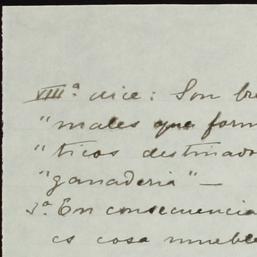 VIIIª dice: Son
"males que form
"ticos destinado
"ganaderia" —
3ª En consecuencia
es cosa mueble